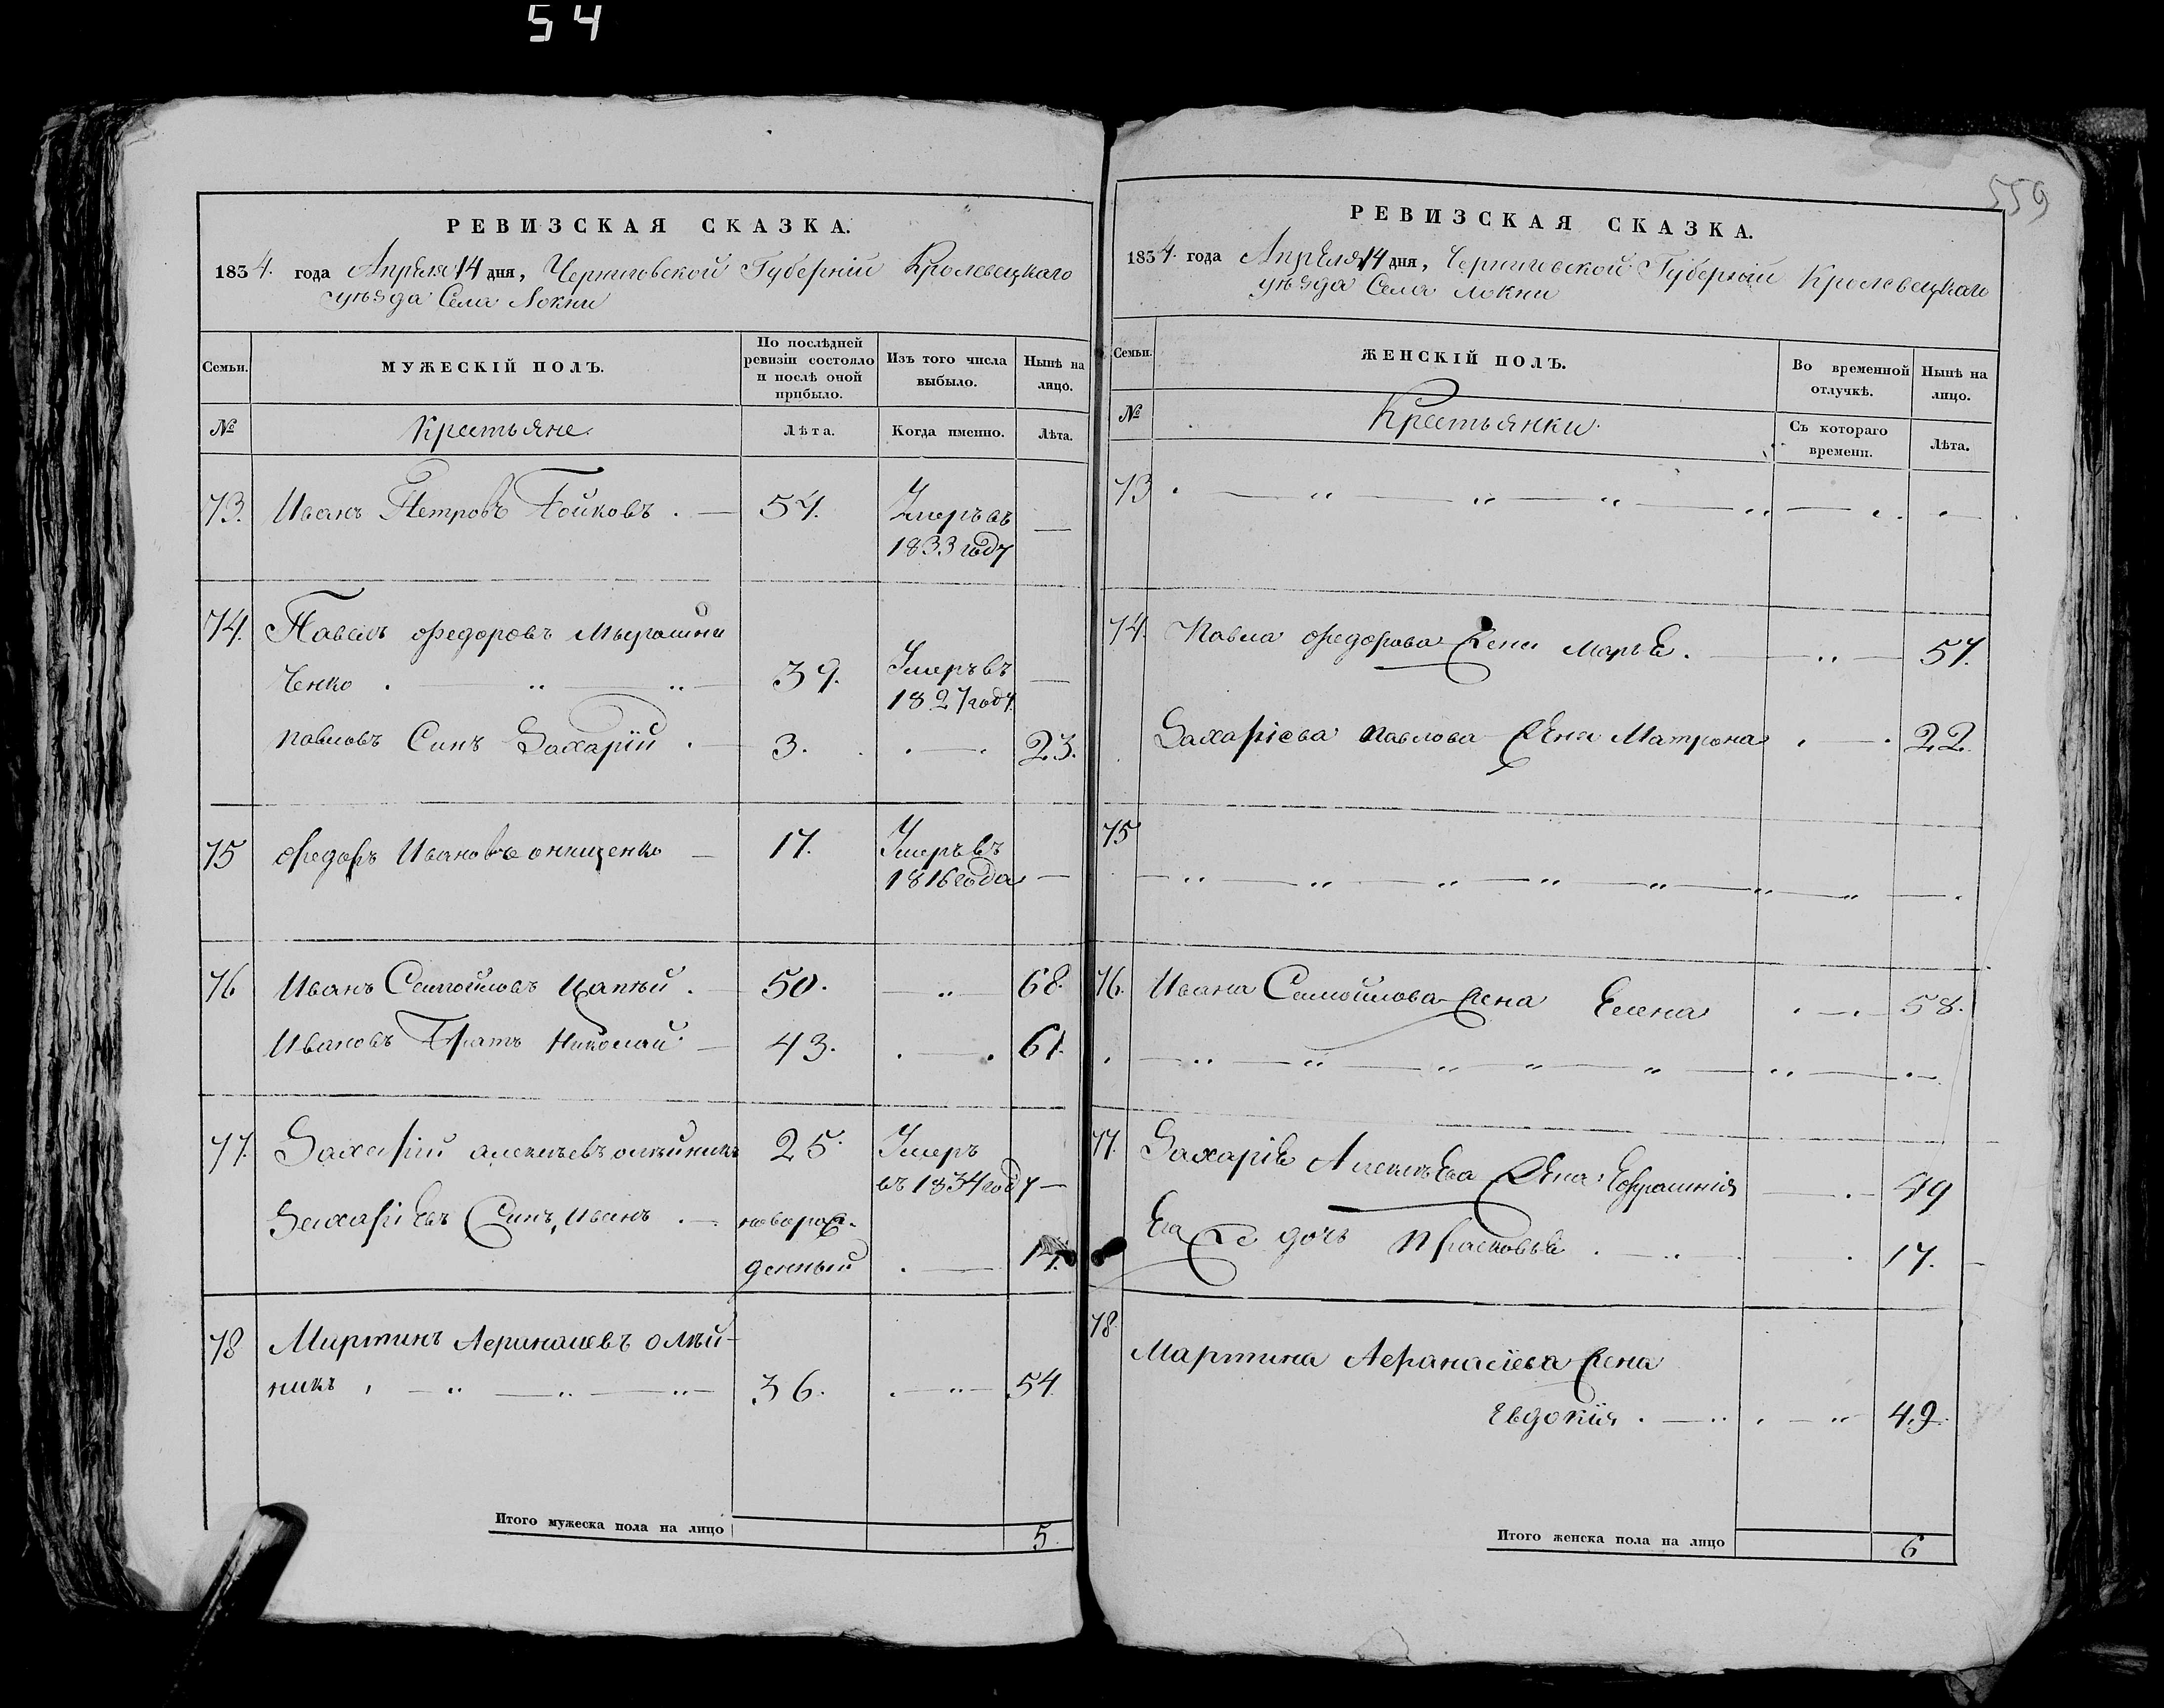 54
559
РЕВИЗСКАЯ СКАЗКА.
1834. года Апреля 14 дня, Черниговской Губернiи Кролевецкаго
уѣзда Села Локни
Семьи.
МУЖЕСКІЙ ПОЛЪ.
По послѣдней ревизіи состояло и послѣ оной прибыло.
Изъ того числа выбыло.
Нынѣ на лицо.
№
Крестьяне.
Лѣта.
Когда именно.
Лѣта.
73. Иванъ Петровъ 54. Умеръ въ
1833 году
74. Павелъ Федоровъ
ченко 39. Умеръ въ
1827 году
Павловъ Синъ Захарій 3. 23.
75 Федоръ Ивановъ онищенко 17. Умеръ въ
1816 года
76 Иванъ Самойловъ Цапѣй 50. 68.
Ивановъ Братъ Николай 43. 61.
77. Захарій алексѣевъ олѣйникъ 25. Умеръ
въ 1834 году
Захаріевъ Синъ, Иванъ новорож-
денный 17.
78 Мартинъ Афанасиевъ олѣй-
никъ 36. 54
Итого мужеска пола на лицо 5.
РЕВИЗСКАЯ СКАЗКА.
1834. года Апреля 14 дня, Черниговской Губерніи Кролевецкаго
уѣзда Села Локни
Семьи.
ЖЕНСКІЙ ПОЛЪ.
Во временной отлучкѣ.
Нынѣ на лицо.
№
Крестьянки.
Съ котораго времени.
Лѣта.
73
74. Павла Федорова Жена Марье. 57.
Захаріева Павлова Жена Матрона 22.
75
76. Ивана Самойлова жена Елена 58.
77. Захаріе Алексѣева Жена Ефросинія 49
Его же дочь Прасковье 17.
78. Мартина Афанасіева жена
Евдокія 49.
Итого женска пола на лицо 6